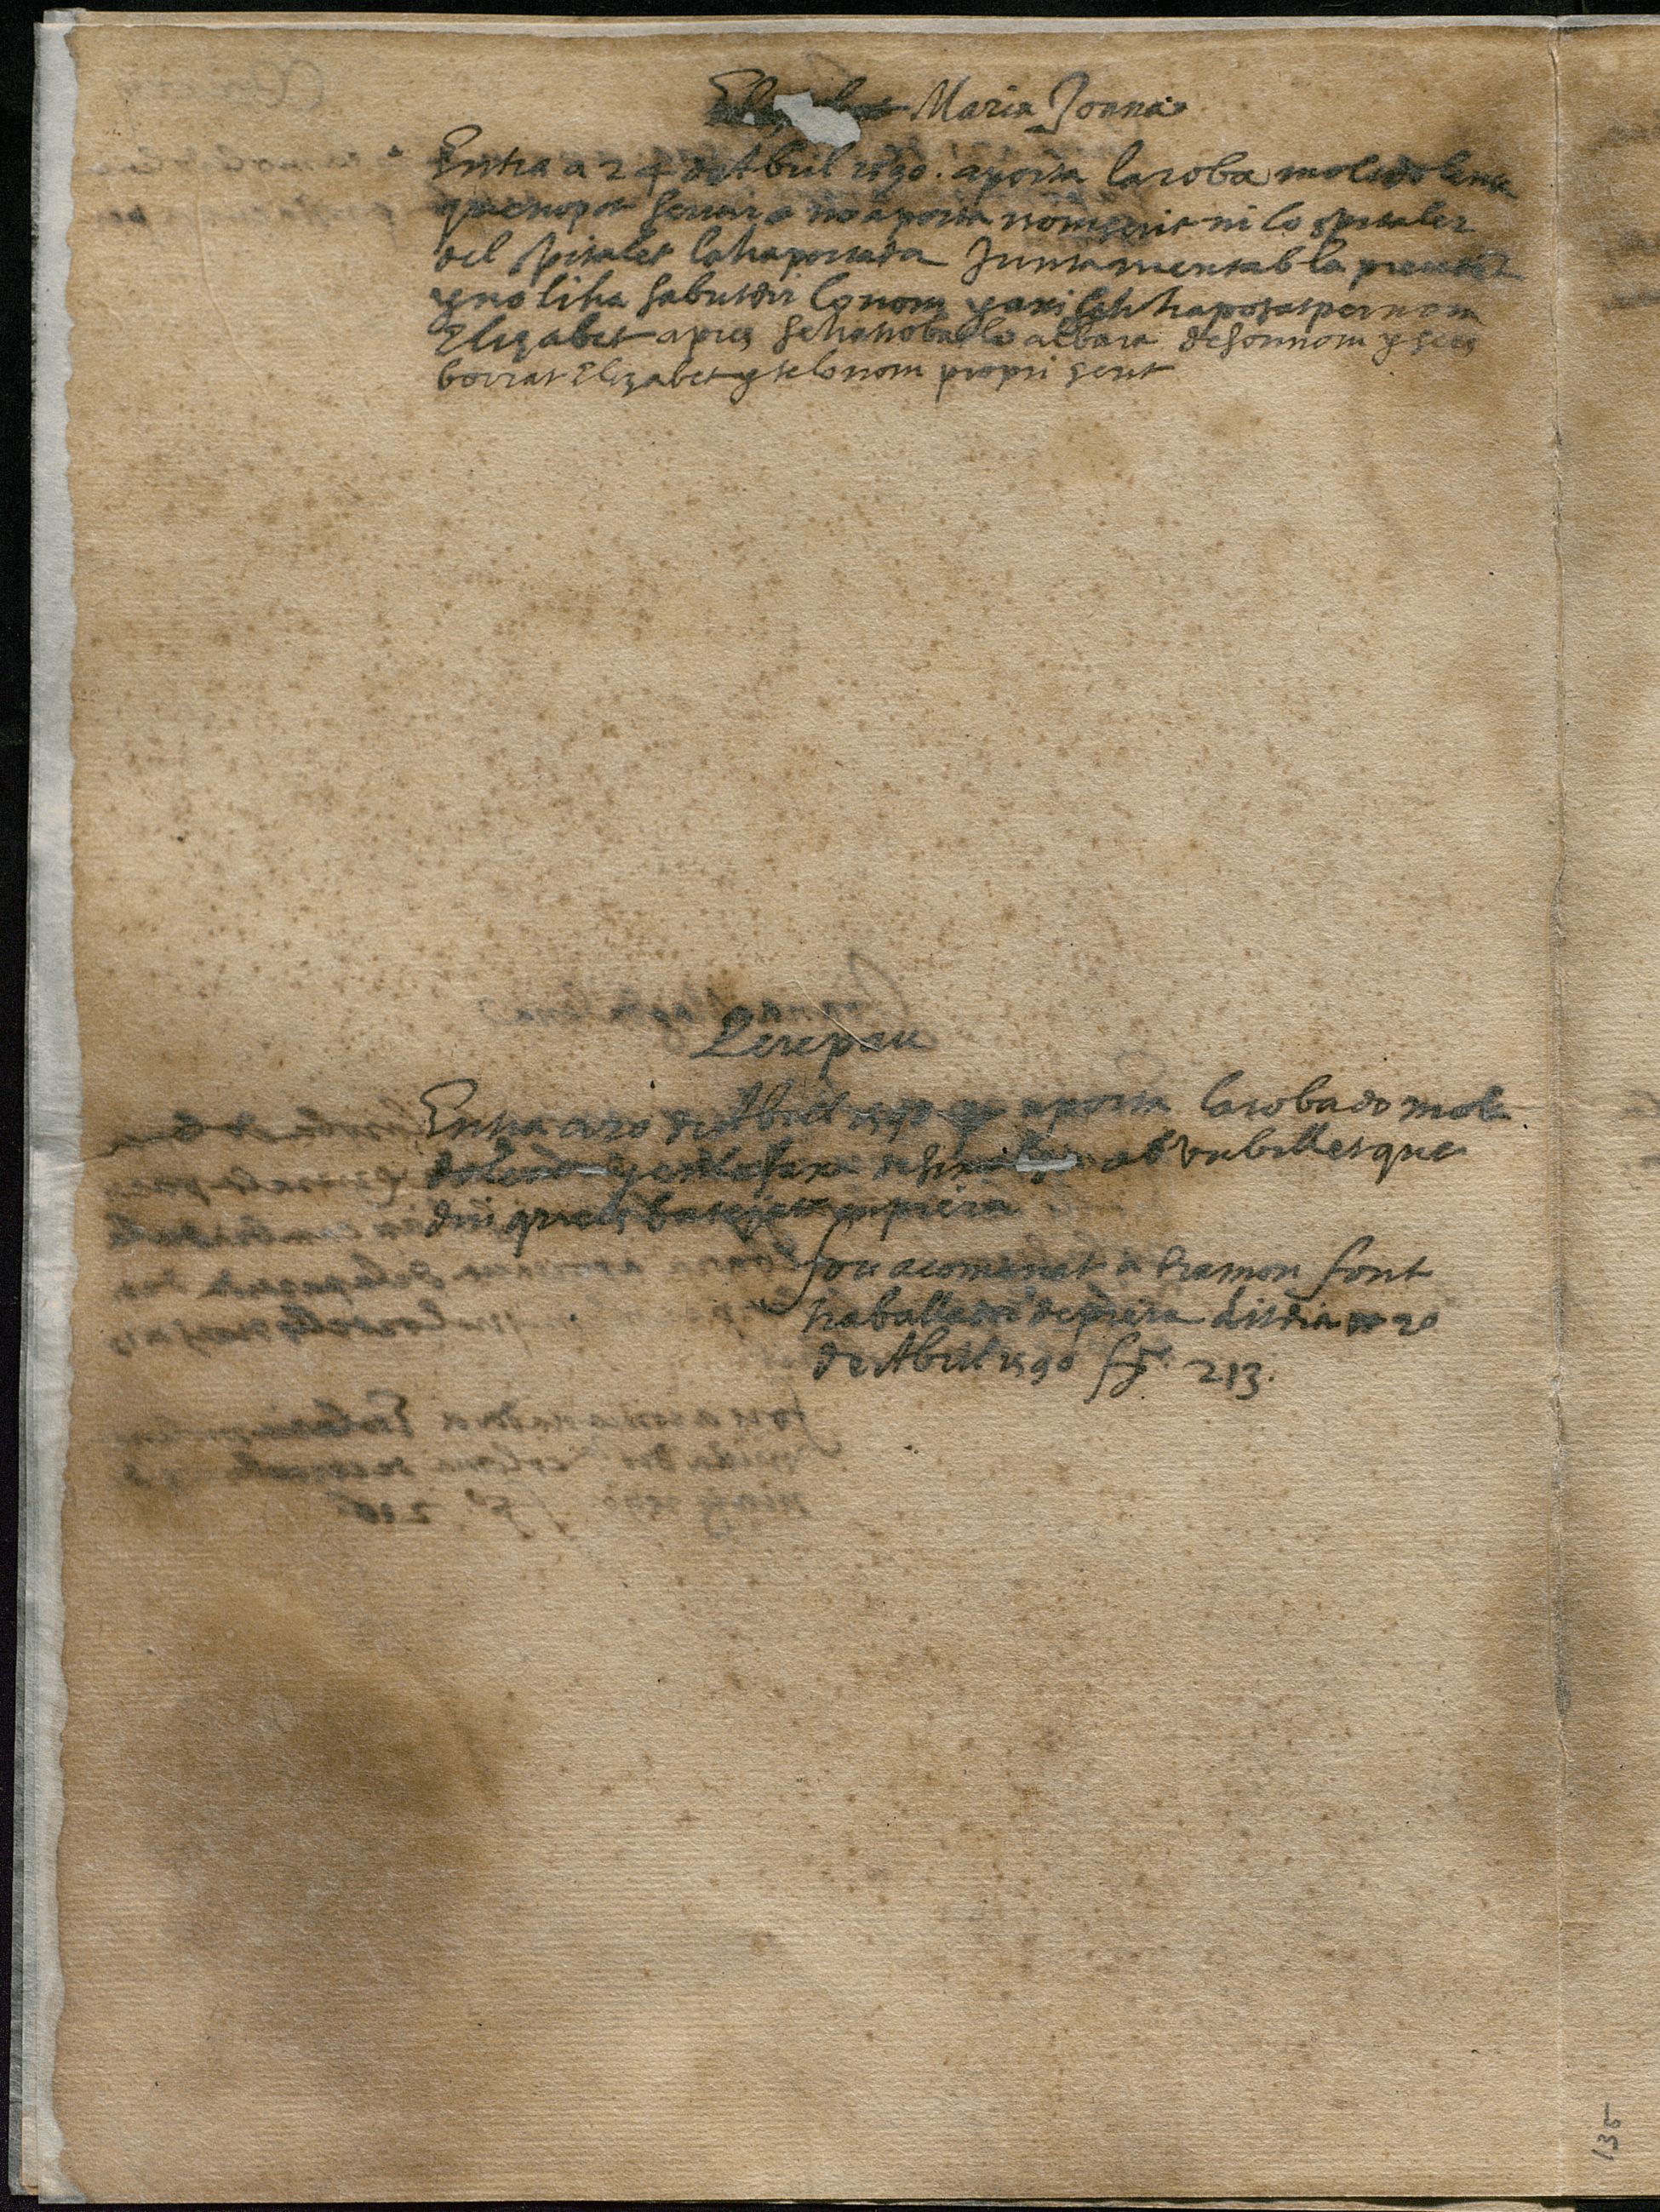 Elizabet Maria Joana
Entra a 24 de Abril 1590. aporta la roba molt dolenta
que no pot servir no aporta nom escrit ni lo spitaler
del spitalet la ha portada juntament ab la present
y no li ha sabut dir lo nom y axi seli ha posat per nom
Elizabet apres se ha trobat lo albara de son nom y es
borrat Elizabet y te lo nom propri scrit
Pere pau
Entra a 20 de Abril 1590 aporta la roba de molt
dolenta y ab bubillet que
diu que es batejat en piera
fou acomenat a Ramon font
traballador de piera dit dia 20
de Abril 1590 213.
135